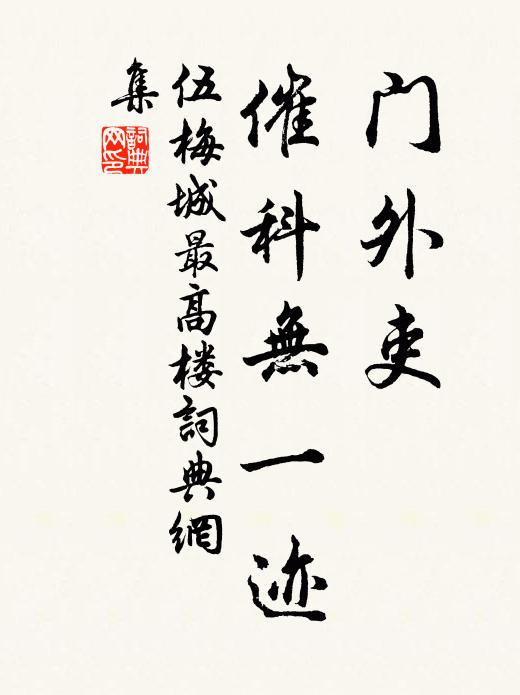 门外吏
催科無一迹
伍梅城最高楼詞典網
集
詞典
网印